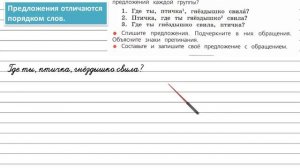 Предложения отличаются
порядком слов.
предложения каждой группы?
1. Где ты, птичка¹, гнёздышко свила́?
2. Птичка, где ты гнёздышко² свила?
3. Где ты гнёздышко свила, птичка?
● Спишите предложения. Подчеркните в них обращения.
Объясните знаки препинания.
● Составьте и запишите своё предложение с обращением.
Где ты, птичка, гнёздышко свила?